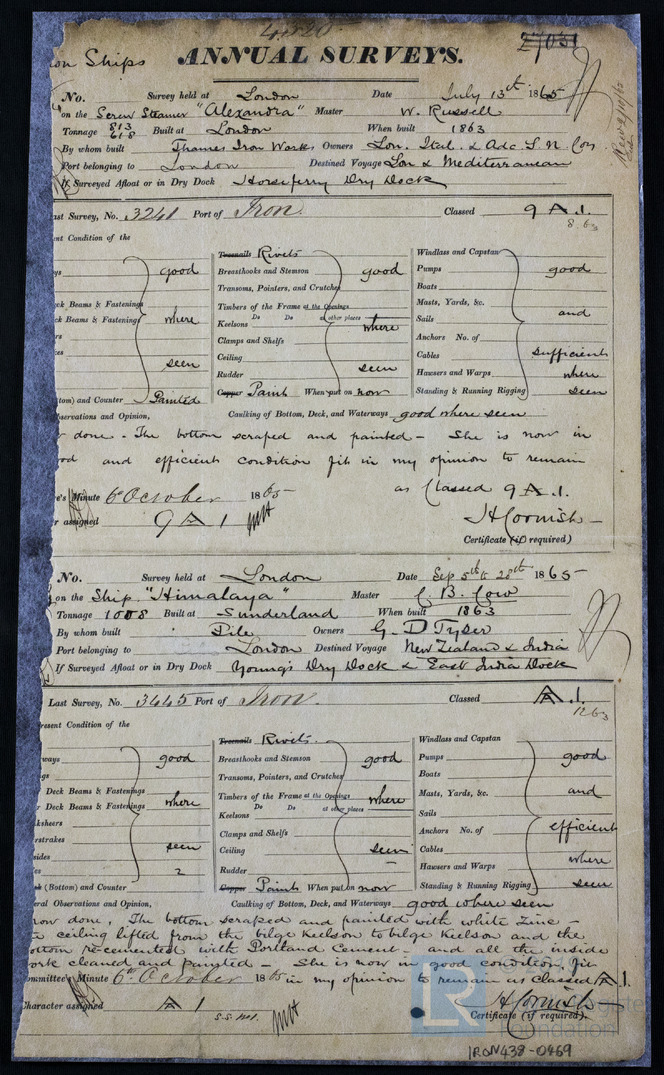 4520
Ships
ANNUAL SURVEYS.
No. Survey held at London Date July 13th 1865
on the Screw Steamer "Alexandra" Master W. Russell
Tonnage 813 618 Built at London When built 1863
By whom built Thames Iron Works Owners Lon. Ital. & Adc. S. N. Cos
Port belonging to London Destined Voyage Lon & Mediterranean
If Surveyed Afloat or in Dry Dock Horseferry Dry Dock
ast Survey, No. 3241 Port of Iron. Classed 9 A .1.
8.63
ent Condition of the
Treenails Rivets
Windlass and Capstan
good
Breasthooks and Stemson good
Pumps good
Transoms, Pointers, and Crutches
Boats
ck Beams & Fastenings
Timbers of the Frame at the Openings
Masts, Yards, &c.
ck Beams & Fastenings where
Do Do at other places
Sails and
Keelsons where
Anchors No. of
Clamps and Shelfs
Cables sufficient
seen
Ceiling
Hawsers and Warps where
Rudder seen
Standing & Running Rigging seen
tom) and Counter Painted
Copper Paint When put on now
bservations and Opinion, Caulking of Bottom, Deck, and Waterways good where seen
done - The bottom scraped and painted - She is now in
od and efficient condition fit in my opinion to remain
as Classed 9 A .1.
e's Minute 6th October 1865
r assigned 9 A 1
H Cornish
Certificate (if required)
No. Survey held at London Date Sep 5th & 20th 1865
on the Ship "Himalaya" Master C. B. Cow
Tonnage 1008 Built at Sunderland When built 1863
By whom built Pile Owners G. D Tyser
Port belonging to London Destined Voyage New Zealand & India
If Surveyed Afloat or in Dry Dock Young's Dry Dock & East India Dock
Last Survey, No. 3445 Port of Iron. Classed A .1.
12 63
resent Condition of the
Treenails Rivets.
Windlass and Capstan
ways good
Breasthooks and Stemson good
Pumps good
gs
Transoms, Pointers, and Crutches
Boats
Deck Beams & Fastenings
Timbers of the Frame at the Openings where
Masts, Yards, &c. and
Deck Beams & Fastenings where
Do Do at other places
Sails
ksheers
Keelsons
Anchors No. of efficient
rstrakes
Clamps and Shelfs
Cables
sides seen
Ceiling seen
Hawsers and Warps where
Rudder
(Bottom) and Counter
Copper Paint When put on now
Standing & Running Rigging seen
eral Observations and Opinion, Caulking of Bottom, Deck, and Waterways good where seen
now done. The bottom scraped and painted with white Zinc -
ceiling lifted from the bilge Keelson to bilge Keelson and the
ottom recemented with Portland Cement - and all the inside
ork cleaned and painted - She is now in good condition, fit
ommittee's Minute 6th October 1865 in my opinion to remain as Classed A 1.
Character assigned A 1
H Cornish
Certificate (if required).
LR
Foundation
IRON438-0469